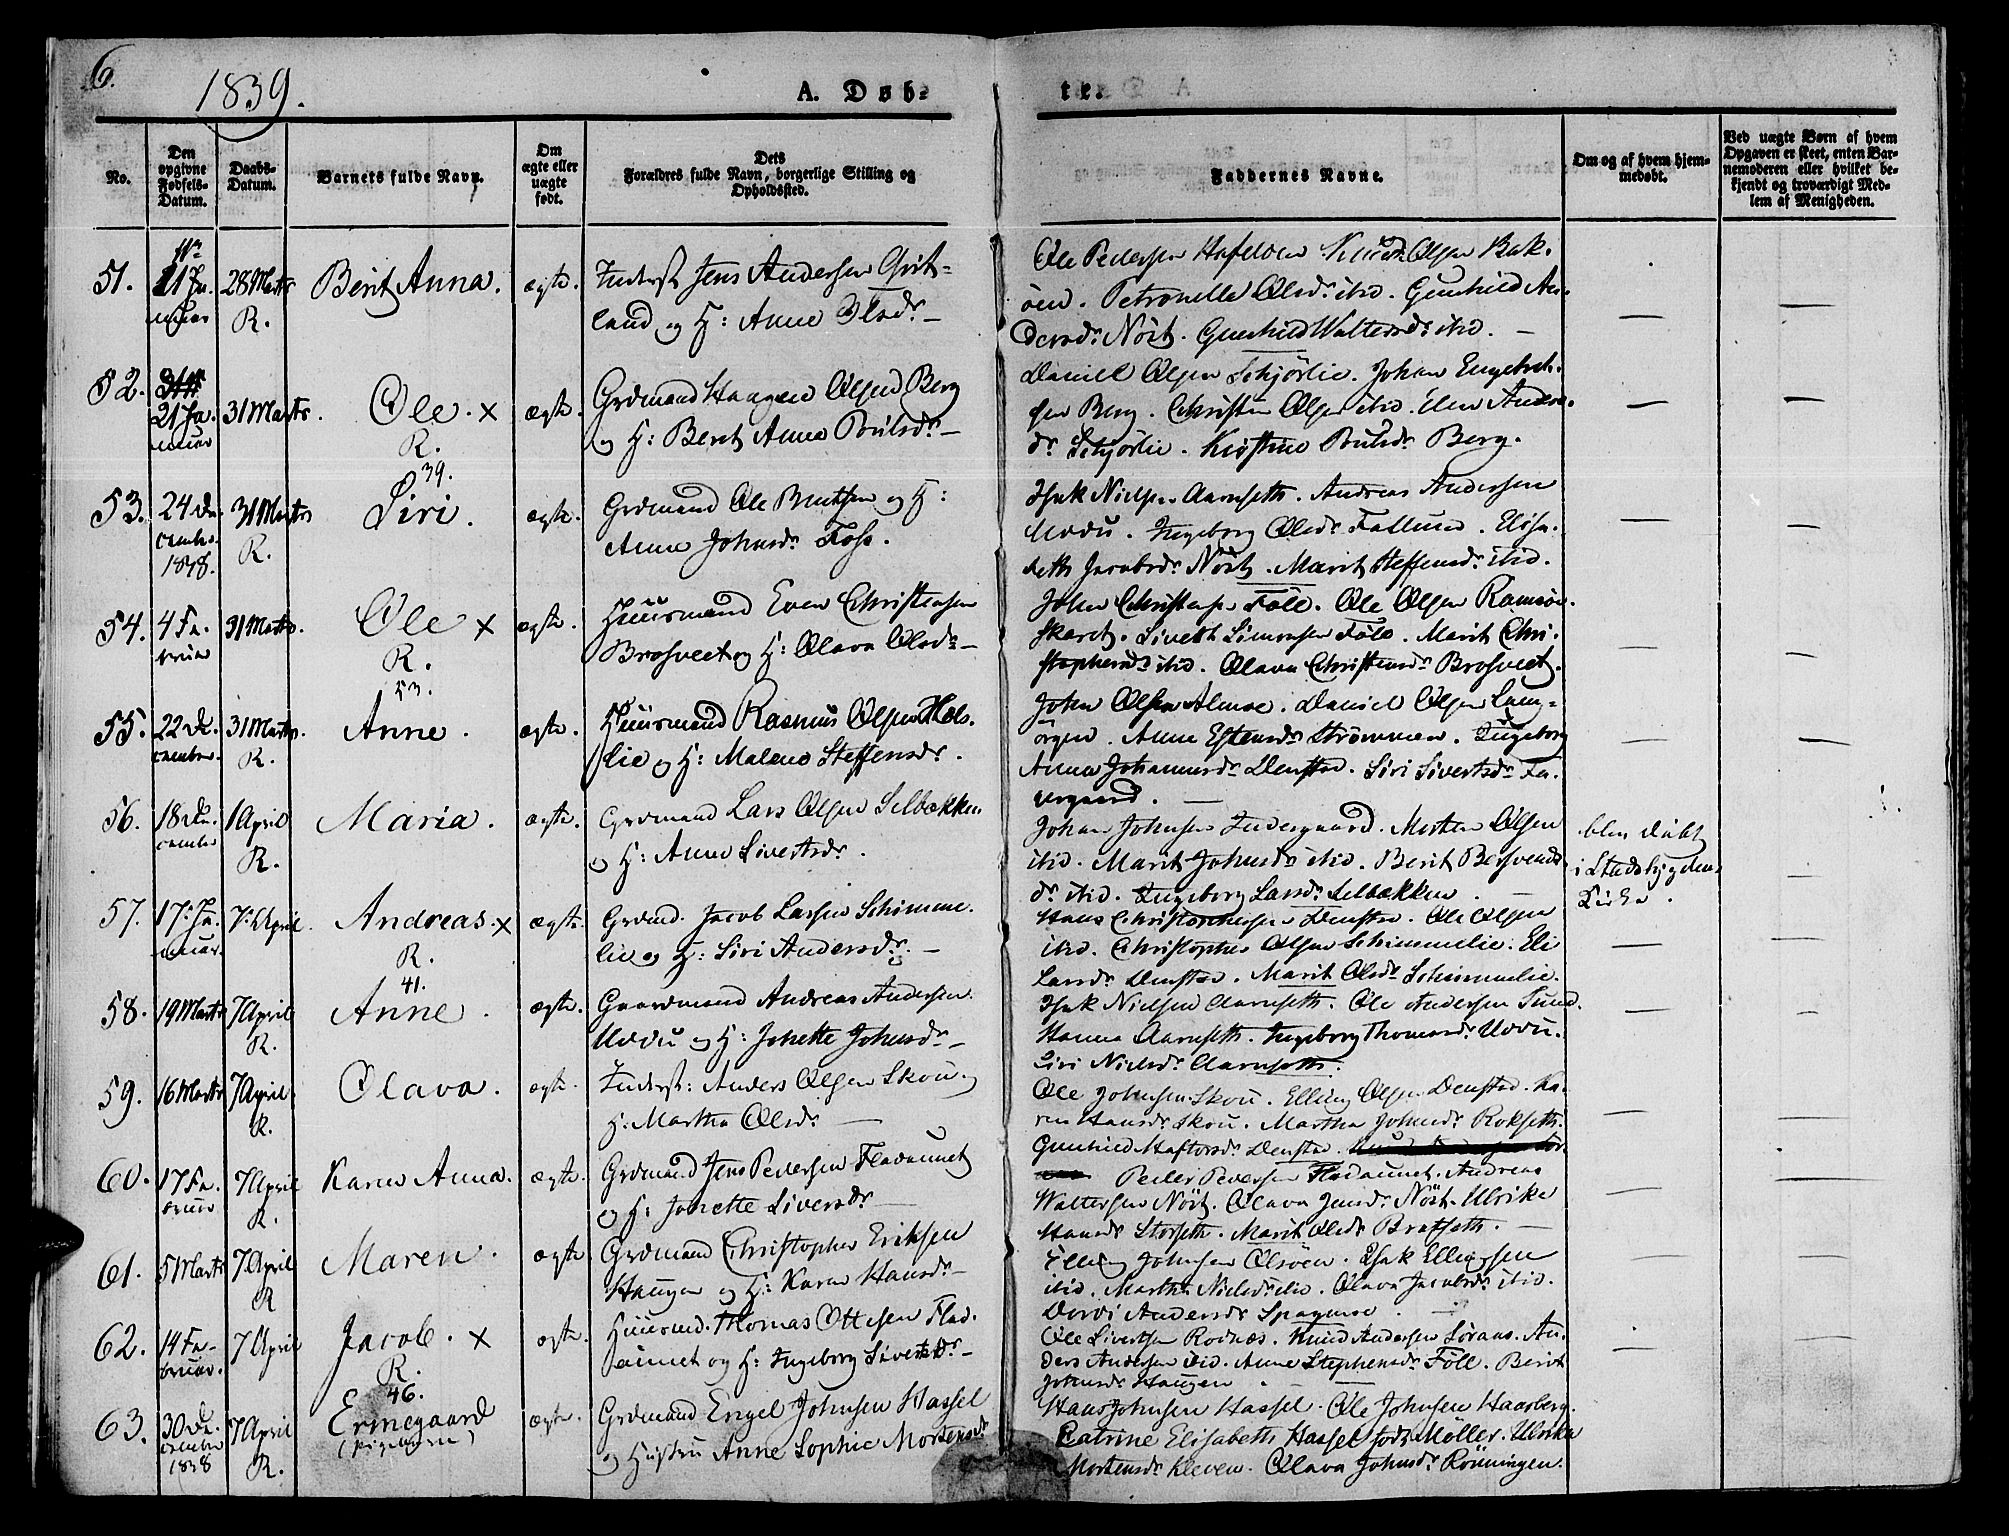 6.
1839.
A. Døb-
te.
No.
Den opgivne Fødsels-Datum.
Daabs-Datum.
Barnets fulde Navn.
Om ægte eller uægte født.
Dets Forældres fulde Navn, borgerlige Stilling og Opholdssted.
Faddernes Navne.
Om og af hvem hjemmedøbt.
Ved uægte Børn af hvem Opgaven er skeet, enten Barnemoderen eller hvilket bekjendt og troværdigt Medlem af Menigheden.
51. 28 Marts R. Berit Anna. ægte. Inderst Jens Andersen Grit-
land og H: Anne Olsdr. —
Ole Pedersen Knud Olsen Bak-
øen. Petronelle Olsdr. ibid. Gunhild An-
dersdr. Nöst. Gunhild Waltersdr. ibid. —
52. 21 Januar 31 Marts. Ole. x R. 39. ægte. Grdmand Haagen Olsen Berg
og H: Berit Anna Poulsdr. —
Daniel Olsen Schjörlie. Johan Engebret-
sen Berg. Christen Olsen ibid. Elen Anders-
dr. Schjörlie. Kirstine Poulsdr. Berg.
53. 24 December 1838. 31 Marts R. Siri. ægte. Grdmand Ole Bentsen og H:
Anne Johnsdr. Foss.
Isak Nielsen Aarnseth. Andreas Andersen
Uvdu. Ingeborg Olsdr. Eliza-
beth Jacobsdr. Nöst. Marit Steffensdr. ibid.
54. 4 Februar 31 Marts. Ole x R. 53. ægte. Huusmand Even Christensen
Brøsveet og H: Olava Olsdr. —
John Christensen Föll. Ole Olsen Ramsøe-
skaret. Sivert Simonsen Föll. Marit Chri-
stophersdr. ibid. Olava Christensdr. Brøsveet.
55. 22 December. 31 Marts. R. Anne. ægte. Huusmand Rasmus Olsen Hols-
lie og H: Malene Steffensdr.
John Olsen Almoe. Daniel Olsen Lang-
örgen. Anne Estensdr. Strømmen. Ingeborg
Anna Johannesdr. Denstad. Siri Sivertsdr.
56. 18 December 1 April R. Maria. ægte. Grdmand Lars Olsen Selbækken
og H: Anne Sivertsdr.
Johan Johnsen Indergaard. Morten Olsen
ibid. Marit Johnsdr. ibid. Berit Bersvends-
dr. ibid. Ingeborg Larsdr. Selbækken. —
blev døbt
i Stadsbygdens
Kirke.
57. 17: Januar. 7: April. Andreas. x R. 41. ægte. Grdmd. Jacob Larsen Schimme-
lie og H: Siri Andersdr. —
Hans Christophersen Denstad. Ole Olsen
ibid. Christopher Olsen Schimmelie. Eli
Larsdr. Denstad. Marit Olsdr. Schimmelie.
58. 19 Marts 7 April R. Anne. ægte. Gaardmand Andreas Andersen
Uvdu og H: Jonette Johnsdr. —
Isak Nielsen Aarnseth. Ole Andersen Sund.
Hanna Aarnseth. Ingeborg Thomasdr. Uvdu.
Siri Nielsdr. Aarnseth.
59. 16 Marts 7 April R. Olava. ægte. Inderst: Anders Olsen Skou og
H: Martha Olsdr. —
Ole Johnsen Skou. Elling Olsen Denstad. Ka-
ren Hansdr. Skou. Martha Johnsdr. Rokseth.
Gunhild Haftorsdr. Denstad.
60. 17 Februar 7 April R. Karen Anna. ægte. Grdmand Jens Pedersen Fladaunet
og H: Jonette Siversdr. —
Peder Pedersen Fladaunet. Andreas
Waltersen Nöst. Olava Jensdr. Nöst. Ulrike
Hansdr. Storseth. Marit Olsdr. Bratseth. —
61. 5 Marts 7 April R Maren. ægte Grdmand Christopher Eriksen
Haugen og H: Karen Hansdr. —
Elling Johnsen Olsöen. Isak Ellingsen
ibid. Martha Nielsdr. ibid. Olava Jacobsdr. ibid.
Dordi Andersdr. Spagmoe. —
62. 14 Februar. 7 April Jacob. x R. 46. ægte. Huusmd. Thomas Ottesen Flad-
aunet og H: Ingeborg Sivertsdr. —
Ole Sivertsen Rodnæs. Knud Andersen Söraas. An-
ders Andersen ibid. Anne Stephensdr. Föll. Berit
Johnsdr. Haugen.
63. 30 December 1838 7 April R. Ermegaard (Pigebarn) ægte. Grdmand Engel Johnsen Hassel
og Hustru Anne Sophie Mortensdr.
Hans Johnsen Hassel. Ole Johnsen Haarberg.
Catrine Elisabeth Hassel født Möller. Ulrika
Mortensdr. Kleven. Olava Johnsdr. Rönningen.